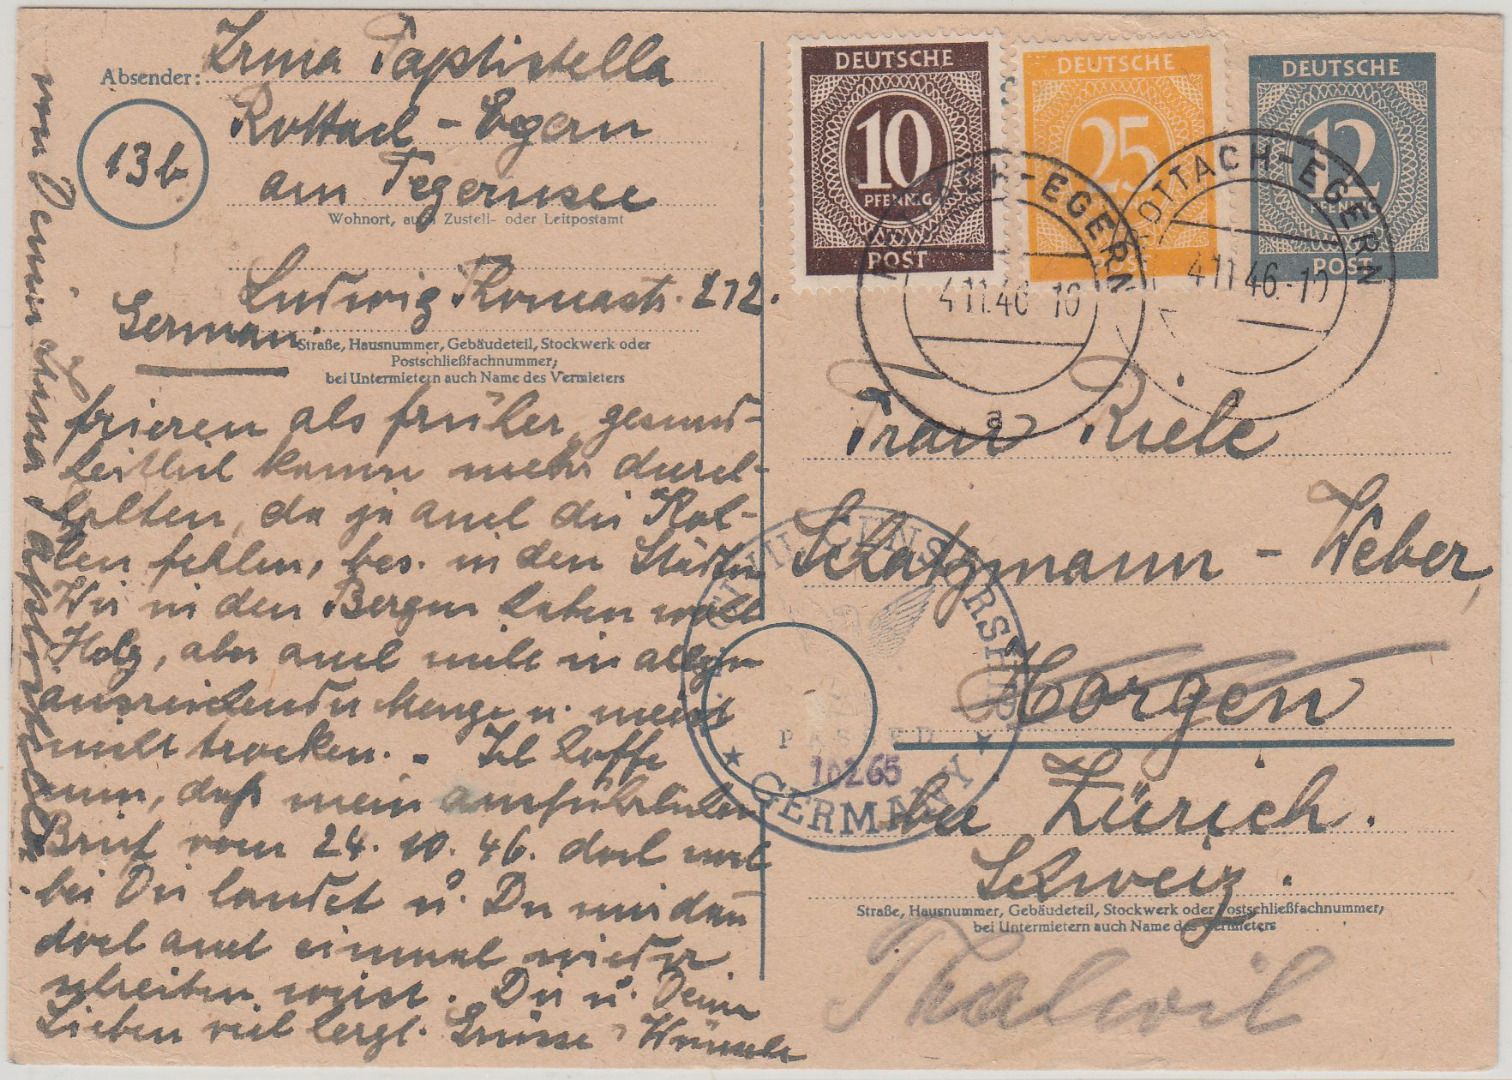 Absender: Irma Taptistella
13b
Rottach-Egern
am Tegernsee
Wohnort, auch Zustell- oder Leitpostamt
Ludwig Thomastr. 212.
Germany
Straße, Hausnummer, Gebäudeteil, Stockwerk oder
Postschließfachnummer;
bei Untermietern auch Name des Vermieters
frieren als früher, gesund-
heitlich kaum mehr durch-
halten, da ja auch die Koh-
len fehlen, bes. in den Städten
Wir in den Bergen haben wohl
Holz, aber auch nicht in allzu
ausreichender Menge u. meist
nicht trocken. – Ich hoffe
nun, daß mein ausführlicher
Brief vom 24. 10. 46. doch wohl
bei Dir landet u. Du mir dann
doch auch einmal wieder
schreiben wirst. Dir u. Deinen
Lieben viel herzl. Grüsse u. Wünsche
von Deiner Irma Taptistella.
DEUTSCHE
10
PFENNIG
POST
DEUTSCHE
25
PFENNIG
POST
DEUTSCHE
12
PFENNIG
POST
ROTTACH-EGERN
4.11.46.-10
a
ROTTACH-EGERN
4.11.46.-10
Frau Riele
Schatzmann-Weber,
Horgen
bei Zürich.
Schweiz.
Straße, Hausnummer, Gebäudeteil, Stockwerk oder Postschließfachnummer;
bei Untermietern auch Name des Vermieters
Thalwil
U.S. CIVIL CENSORSHIP
PASSED
10265
GERMANY